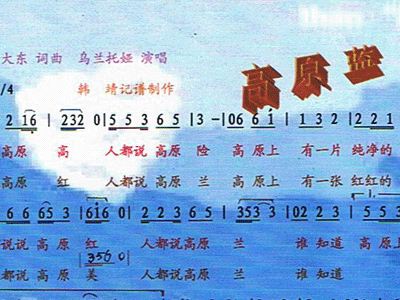 高原蓝
大东 词曲 乌兰托娅 演唱
/4 韩 靖记谱制作
2 16 | 232 0 | 5 5 3 6 5 | 3 - | 06 6 1 | 3 3 1 2 | 2 2 1
高原 高 人都说 高原 险 高 原上 有一片 纯净的
高原 红 人都说 高原 兰 高 原上 有一张 红红的
2 2 3 6 65 3 | 616 0 | 2 2 3 6 5 | 353 3 | 0 1 2 3 | 5 5 3
说说 高 原 红 人都说高原 兰 谁 知道 高原上
356 0
都说 高 原 美 人都说高原 兰 谁 知道